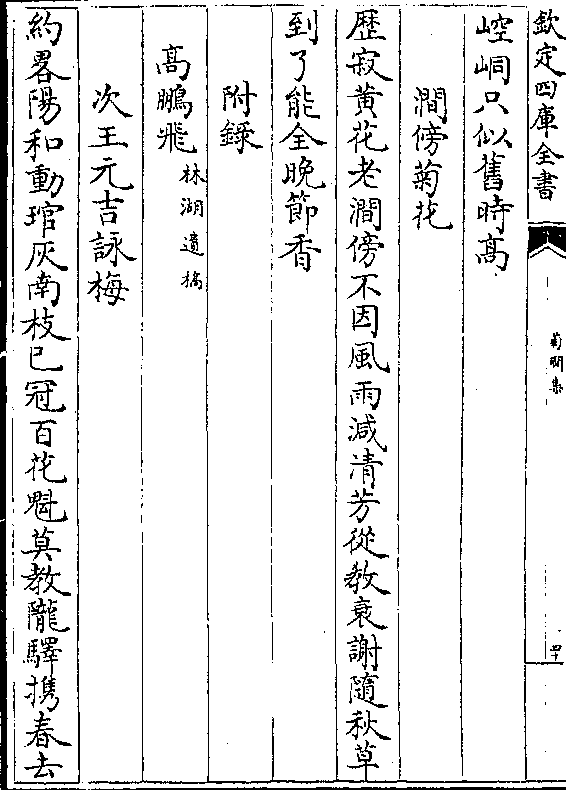 欽定四庫全書
菊磵集
罕
崆峒只似舊時高
澗傍菊花
歷寂黃花老澗傍不因風雨減清芳從教衰謝隨秋草
到了能全晚節香
附錄
高鵬飛林湖遺稿
次王元吉詠梅
約畧陽和動琯灰南枝已冠百花魁莫教隴驛擕春去